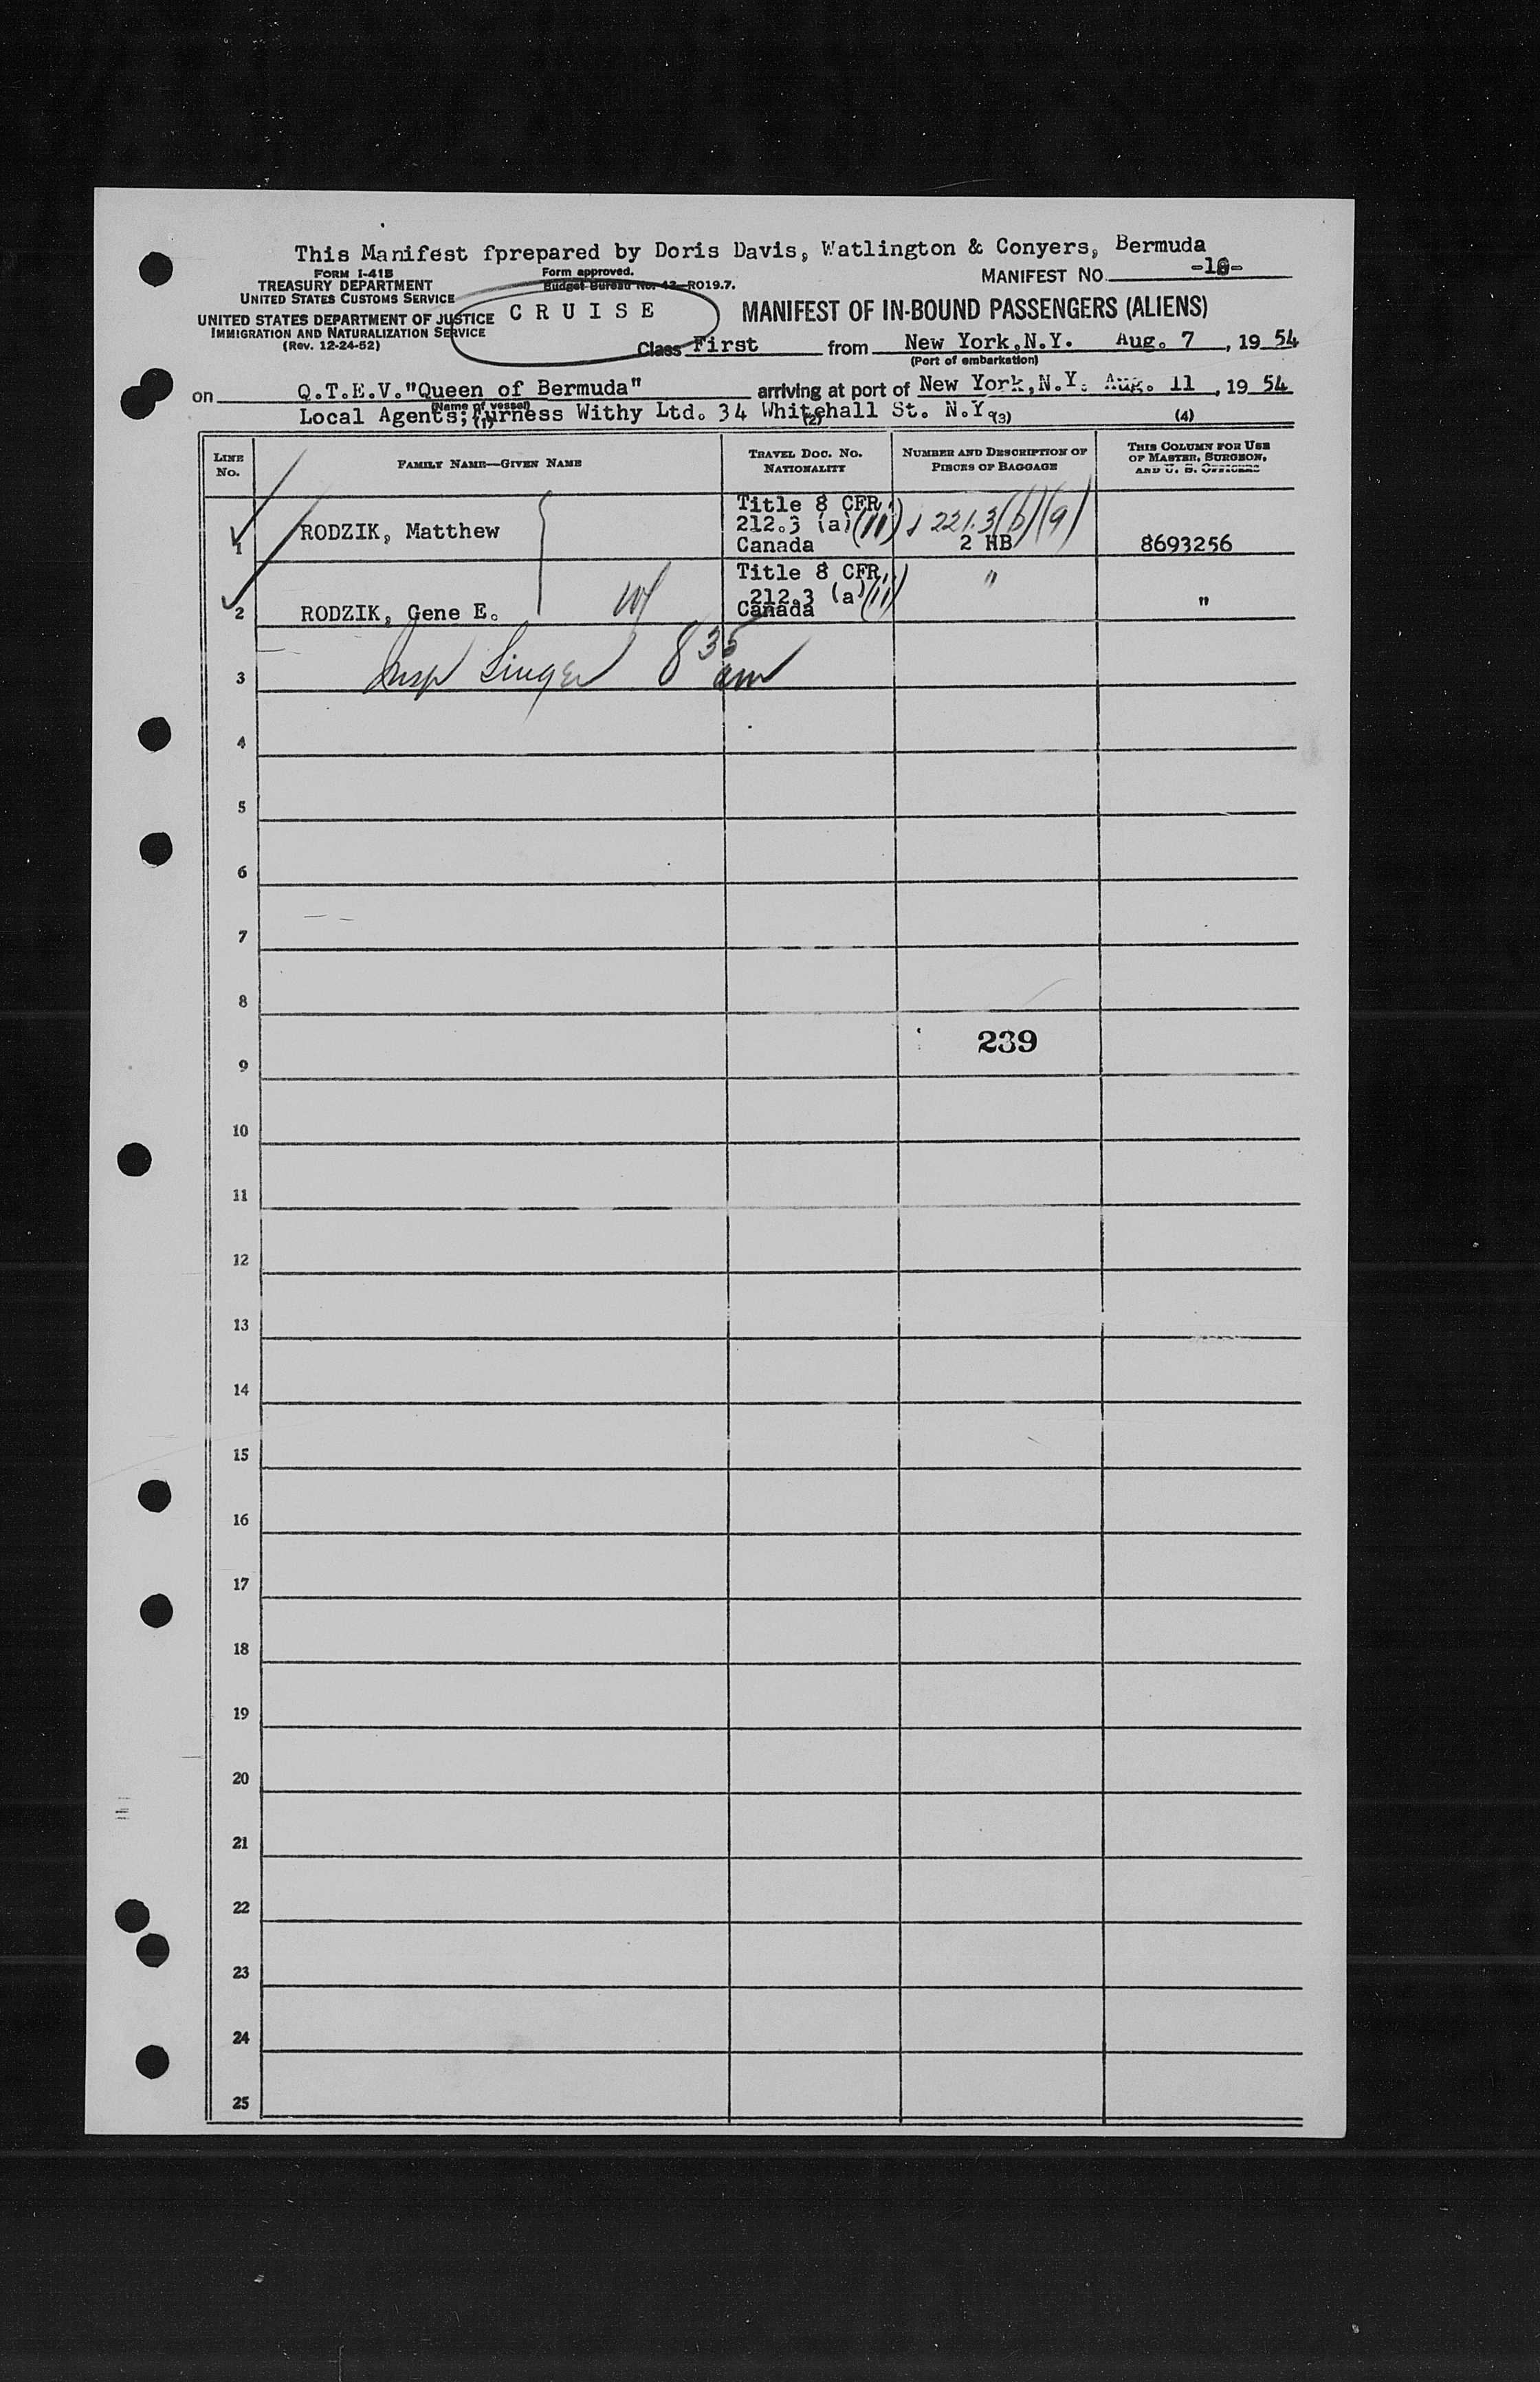 This Manifest fprepared by Doris Davis, Watlington & Conyers, Bermuda
FORM I-41B
TREASURY DEPARTMENT
UNITED STATES CUSTOMS SERVICE
UNITED STATES DEPARTMENT OF JUSTICE
IMMIGRATION AND NATURALIZATION SERVICE
(Rev. 12-24-52)
Form approved.
Budget Bureau No. 43-R019.7.
CRUISE
MANIFEST NO.
MANIFEST OF IN-BOUND PASSENGERS (ALIENS)
Class First from New York,N.Y. Aug. 7, 19 54
(Port of embarkation)
on Q.T.E.V."Queen of Bermuda" arriving at port of New York,N.Y. Aug. 11, 19 54
(Name of vessel)
Local Agents; Furness Withy Ltd. 34 Whitehall St. N.Y.
(1) (2) (3) (4)
LINE No.
FAMILY NAME—GIVEN NAME
TRAVEL DOC. NO. NATIONALITY
NUMBER AND DESCRIPTION OF PIECES OF BAGGAGE
THIS COLUMN FOR USE OF MASTER, SURGEON, AND U. S. OFFICERS
Title 8 CFR
1 RODZIK, Matthew 212.3 (a)(11) 221.3(b)(9)
Canada 2 HB 8693256
Title 8 CFR
212.3 (a)(11) "
2 RODZIK, Gene E. Canada "
3 Insp Singer 8 35 am
4
5
6
7
8
239
9
10
11
12
13
14
15
16
17
18
19
20
21
22
23
24
25